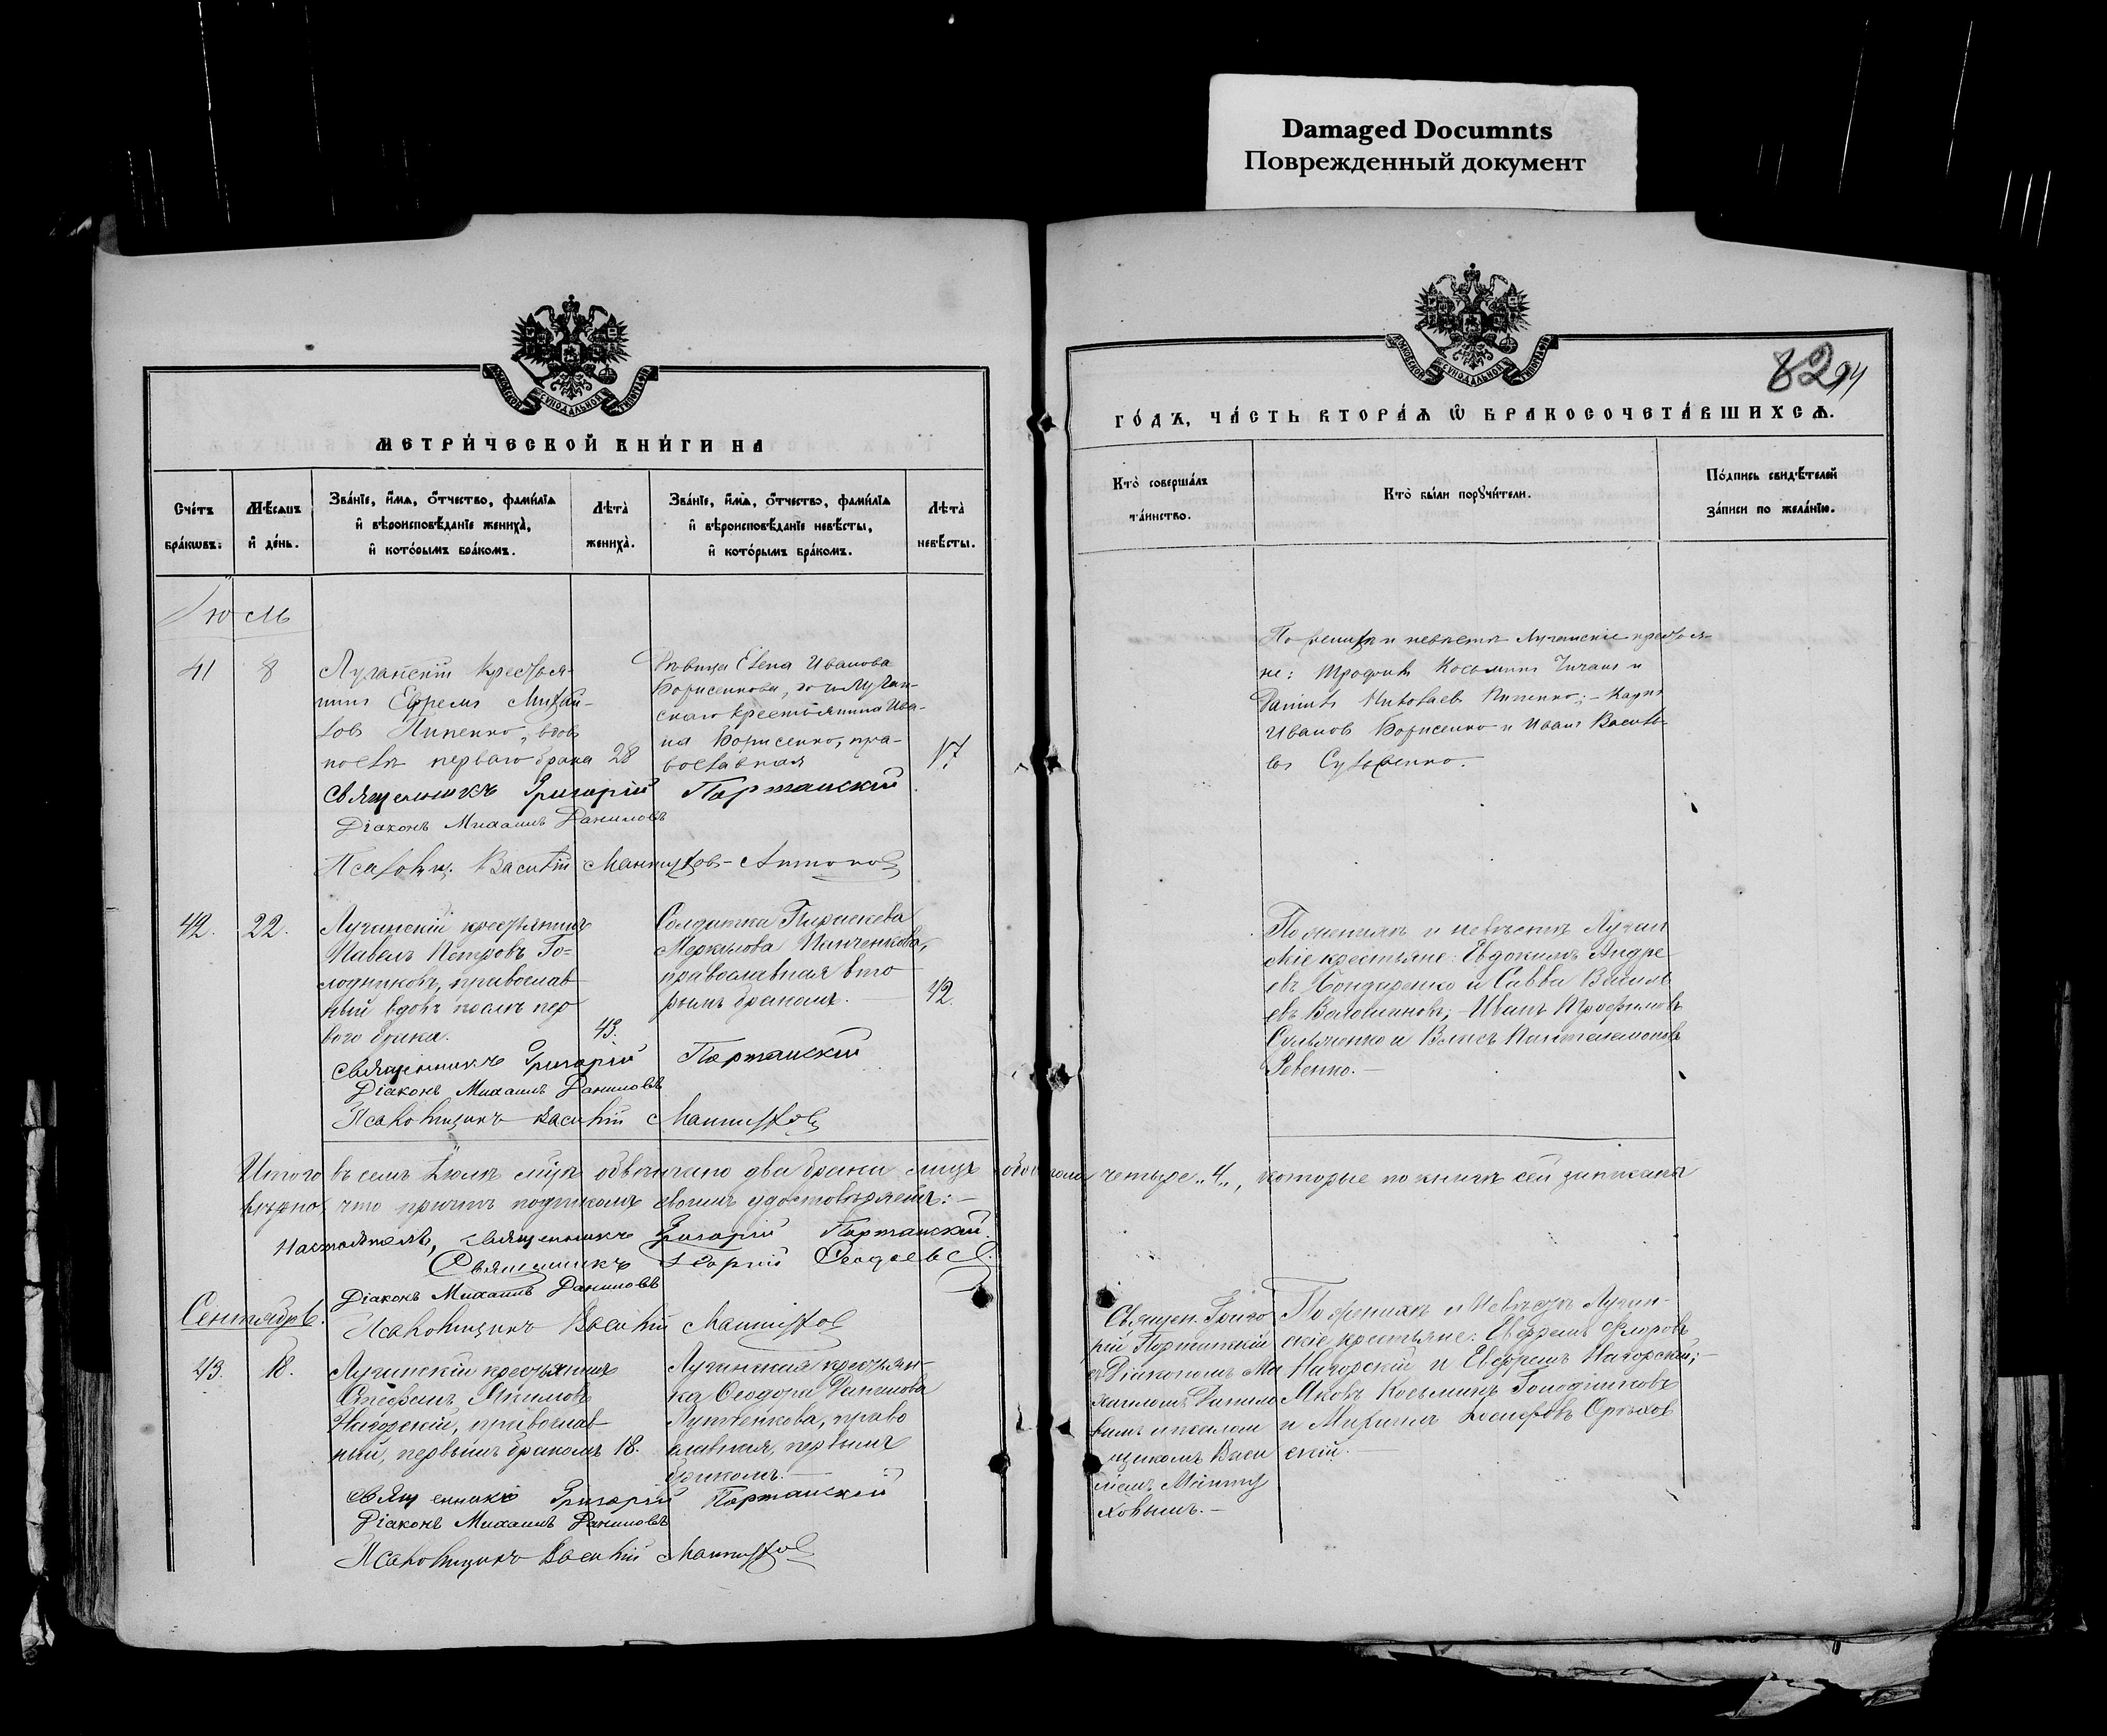 Damaged Documnts
Поврежденный документ
МЕТРИЧЕСКОЙ КНИГИ НА
Счетъ браковъ.
Мѣсяцъ и день.
Званіе, имя, отчество, фамилія и вѣроисповѣданіе жениха, и которымъ бракомъ.
Лѣта жениха.
Званіе, имя, отчество, фамилія и вѣроисповѣданіе невѣсты, и которымъ бракомъ.
Лѣта невѣсты.
Іюль
41
8
Луганскій крестья-
нинъ Ефремъ Михай-
ловъ Липенко, вдовъ
послѣ перваго брака
28
Дѣвица Елена Иванова
Борисенкова, дочь Луган-
скаго крестьянина Ива-
на Борисенко, пра-
вославная
17
Священникъ Григорій Портанскій
Діаконъ Михаилъ Даниловъ
Псаломщ. Василій Мантуховъ-Антонов
42.
22.
Луганскій крестьянинъ
Павелъ Петровъ Го-
лодниковъ, православ
ный вдовъ послѣ пер
ваго брака.
43.
Солдатка Параскева
Меркулова Панченкова,
православная вто
рымъ бракомъ.
42.
Священникъ Григорій Портанскій
Діаконъ Михаилъ Даниловъ
Псаломщикъ Василій Мантухов
Итого въ семъ Іюлѣ мѣсяцѣ обвѣнчано два брака лицъ обоего пола четыре „4„, которые по книгѣ сей записаны
вѣрно, что причтъ подписомъ своимъ удостовѣряетъ:—
Настоятель, священникъ Григорій Портанскій.
Священникъ Георгій
Діаконъ Михаилъ Даниловъ
Псаломщикъ Василій Мантухов
Сентябрь.
43.
18.
Луганскій крестьянинъ
Стефанъ Якимовъ
Нагорскій, православ
ный, первымъ бракомъ
18.
Луганская крестьян-
ка Ѳеодора Данилова
православная, первымъ
бракомъ.—
Священникъ Григорій Портанскій
Діаконъ Михаилъ Даниловъ
Псаломщикъ Василій Мантухов
82
94
ГОДЪ, ЧАСТЬ ВТОРАЯ Ѡ БРАКОСОЧЕТАВШИХСЯ.
Кто совершалъ таинство.
Кто были поручители.
Подпись свидѣтелей записи по желанію.
По женихѣ и невѣстѣ Луганскіе крестья-
не: Трофимъ Косьминъ и
Даніилъ Николаевъ Липенко;—
Ивановъ Борисенко и Иванъ Василь-
евъ
По женихѣ и невѣстѣ Луган
скіе крестьяне: Евдокимъ Андре
евъ Бондаренко и Савва Василь
евъ Волошиновъ;— Иванъ Трофимовъ
и Власъ Пантелеимоновъ
Ревенко.—
Священ. Григо
рій Портанскій
съ Діакономъ Ми
хаиломъ Данило
вымъ и псалом
щикомъ Васи
ліемъ Манту
ховымъ.—
По женихѣ и невѣстѣ Луган-
скіе крестьяне: Ефремъ Флоровъ
Нагорскій и Ефремъ Нагорскій;—
Яковъ Косьминъ Голодниковъ
и Михаилъ Орѣхов
скій.